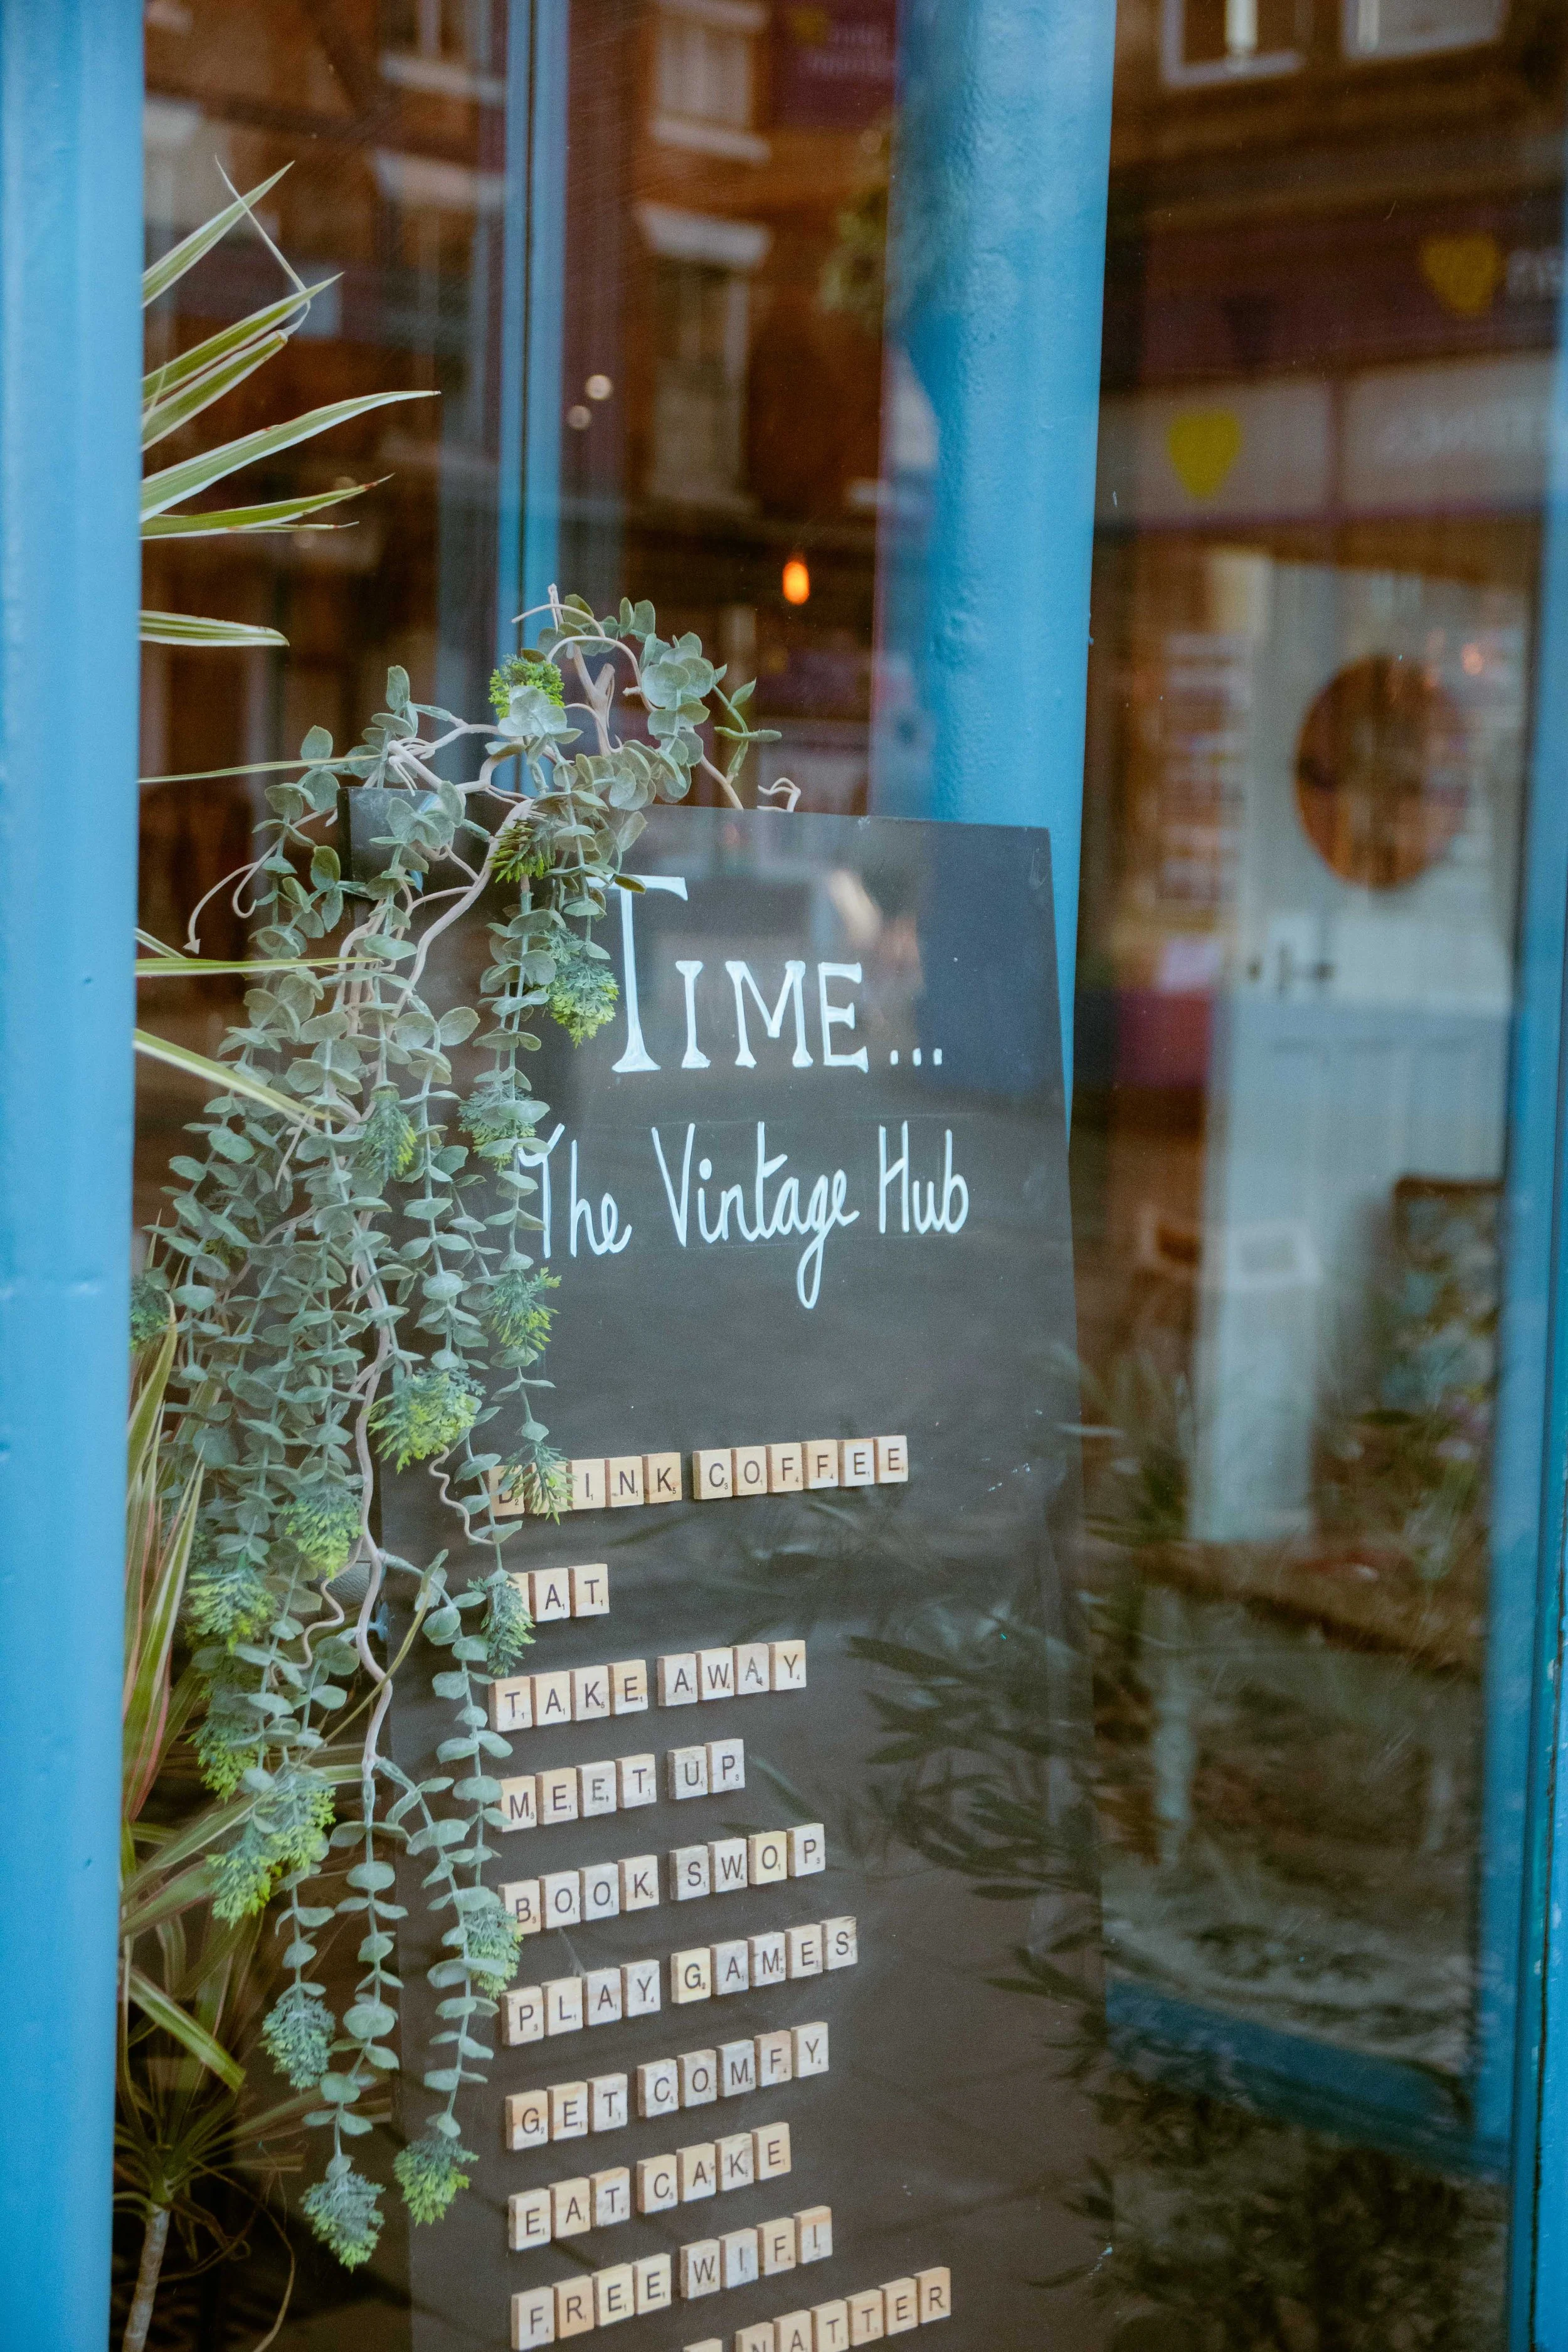 TIME...
The Vintage Hub
DRINK COFFEE
EAT
TAKE AWAY
MEET UP
BOOK SWOP
PLAY GAMES
GET COMFY
EAT CAKE
FREE WIFI
NATTER